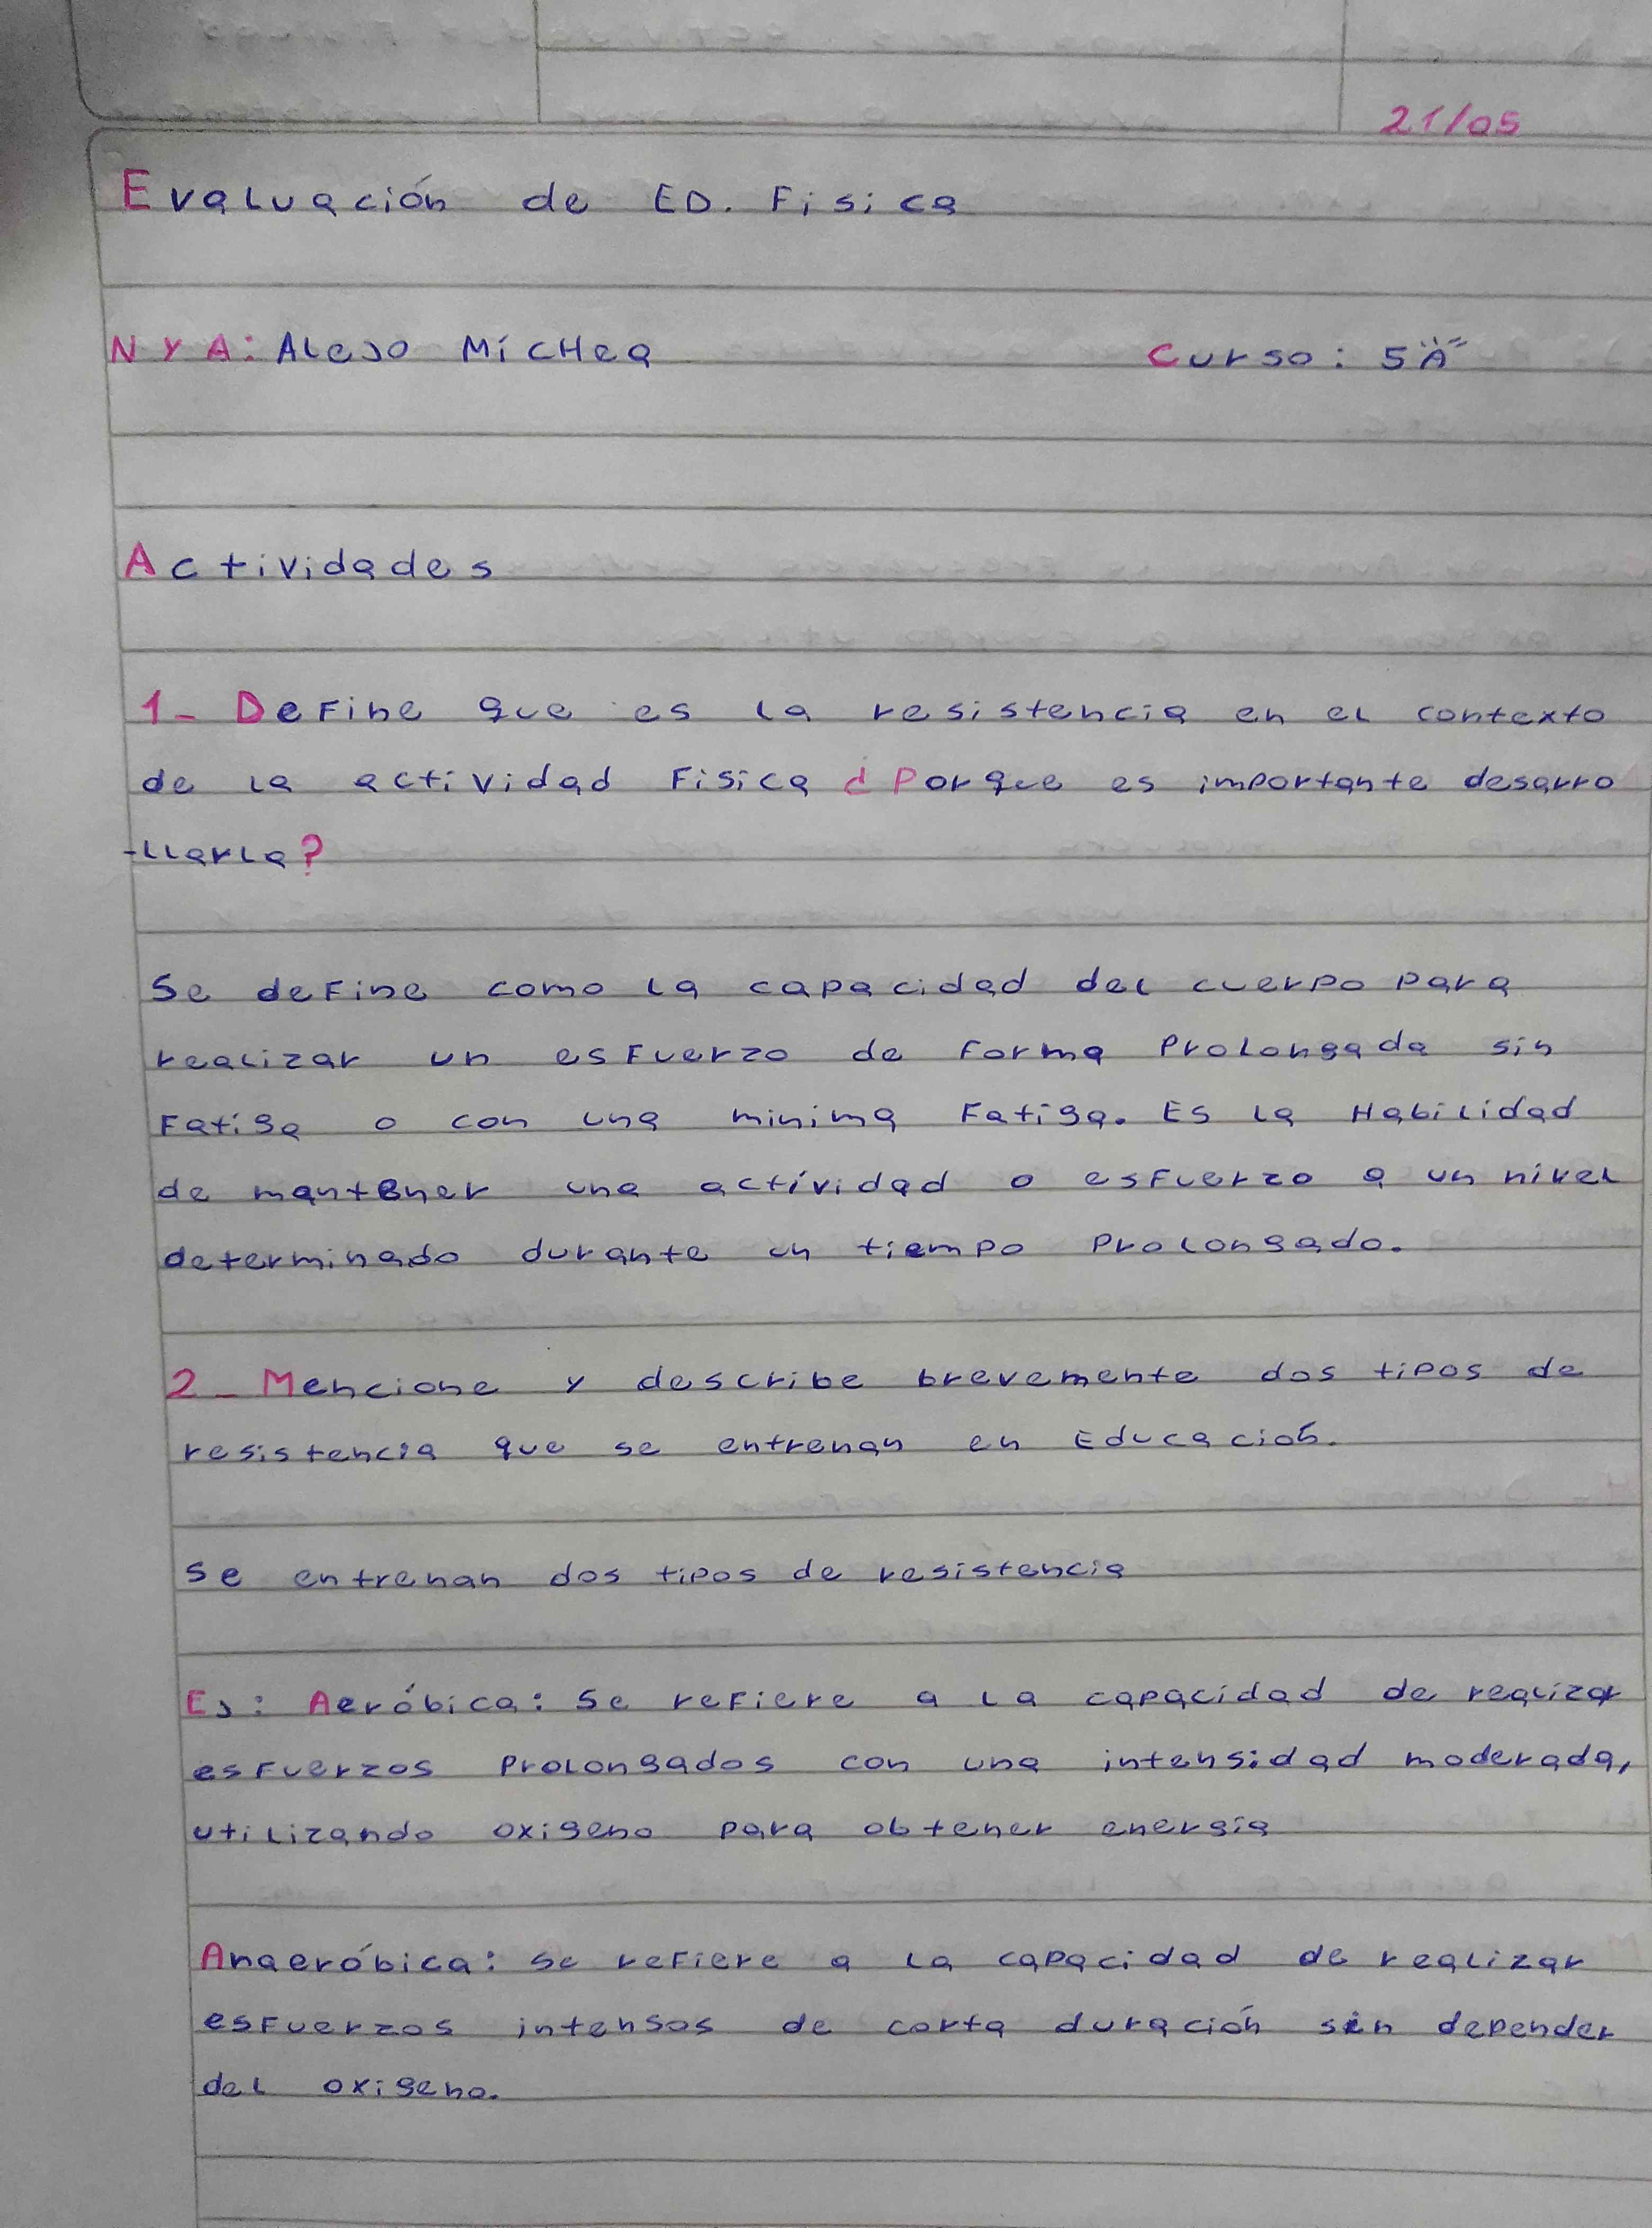 21/05
Evaluación de ED. Fisica
N Y A: Alejo Michea Curso: 5"A"
Actividades
1- Define que es la resistencia en el contexto
de la actividad Fisica ¿Por que es importante desarro
-llarla?
Se define como la capacidad del cuerpo para
realizar un esfuerzo de forma prolongada sin
Fatiga o con una minima Fatiga. Es la Habilidad
de mantener una actividad o esfuerzo a un nivel
determinado durante un tiempo prolongado.
2- Mencione y describe brevemente dos tipos de
resistencia que se entrenan en Educación.
Se entrenan dos tipos de resistencia
Ej: Aeróbica: Se refiere a la capacidad de realizar
esfuerzos prolongados con una intensidad moderada,
utilizando oxigeno para obtener energia
Anaeróbica: se refiere a la capacidad de realizar
esfuerzos intensos de corta duración sin depender
del oxigeno.